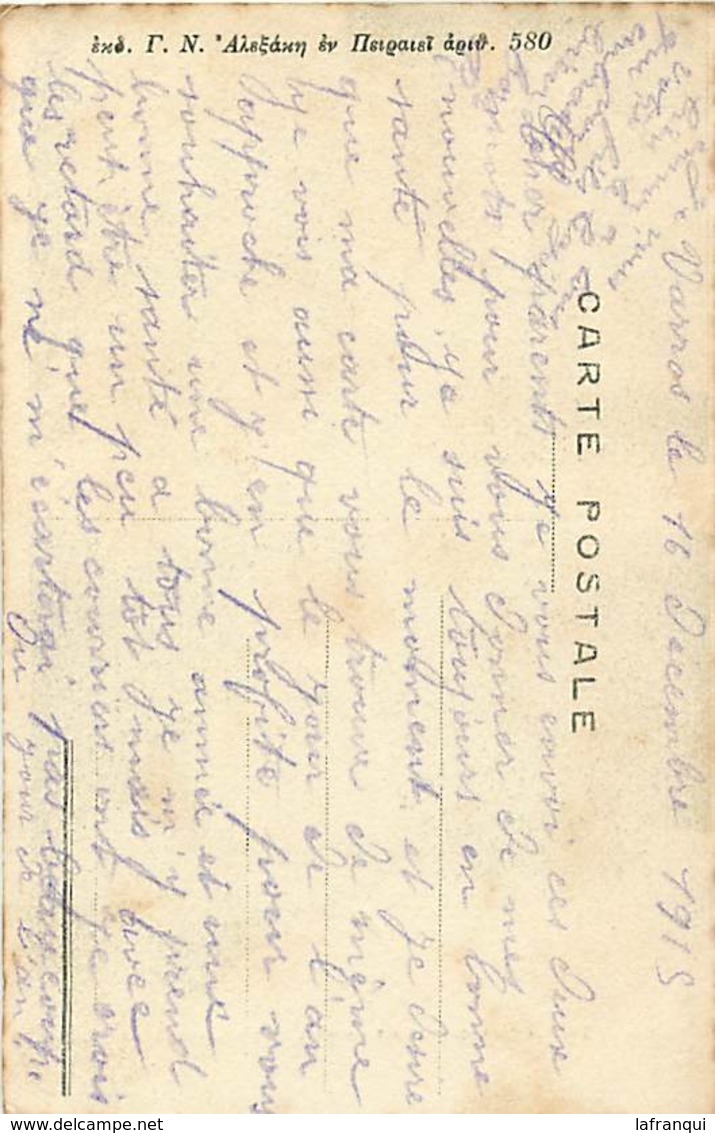 ἐκδ. Γ. Ν. Ἀλεξάκη ἐν Πειραιεῖ ἀριθ. 580
CARTE POSTALE
Varros le 16 Decembre 1915
Cher parents je vous envoi ces deux
mots pour vous donner de mes
nouvelles, je suis toujours en bonne
santé pour le moment et je desire
que ma carte vous trouve de même
je vois aussi que le jour de l'an
approche et j'en profite pour vous
souhaiter une bonne année et une
bonne santé a tous je m'y prend
peut être un peu tôt mais avec
les retard que les courriers ont je crois
que je ne m'écarterai pas beaucoup
du jour de l'an
lafranqui